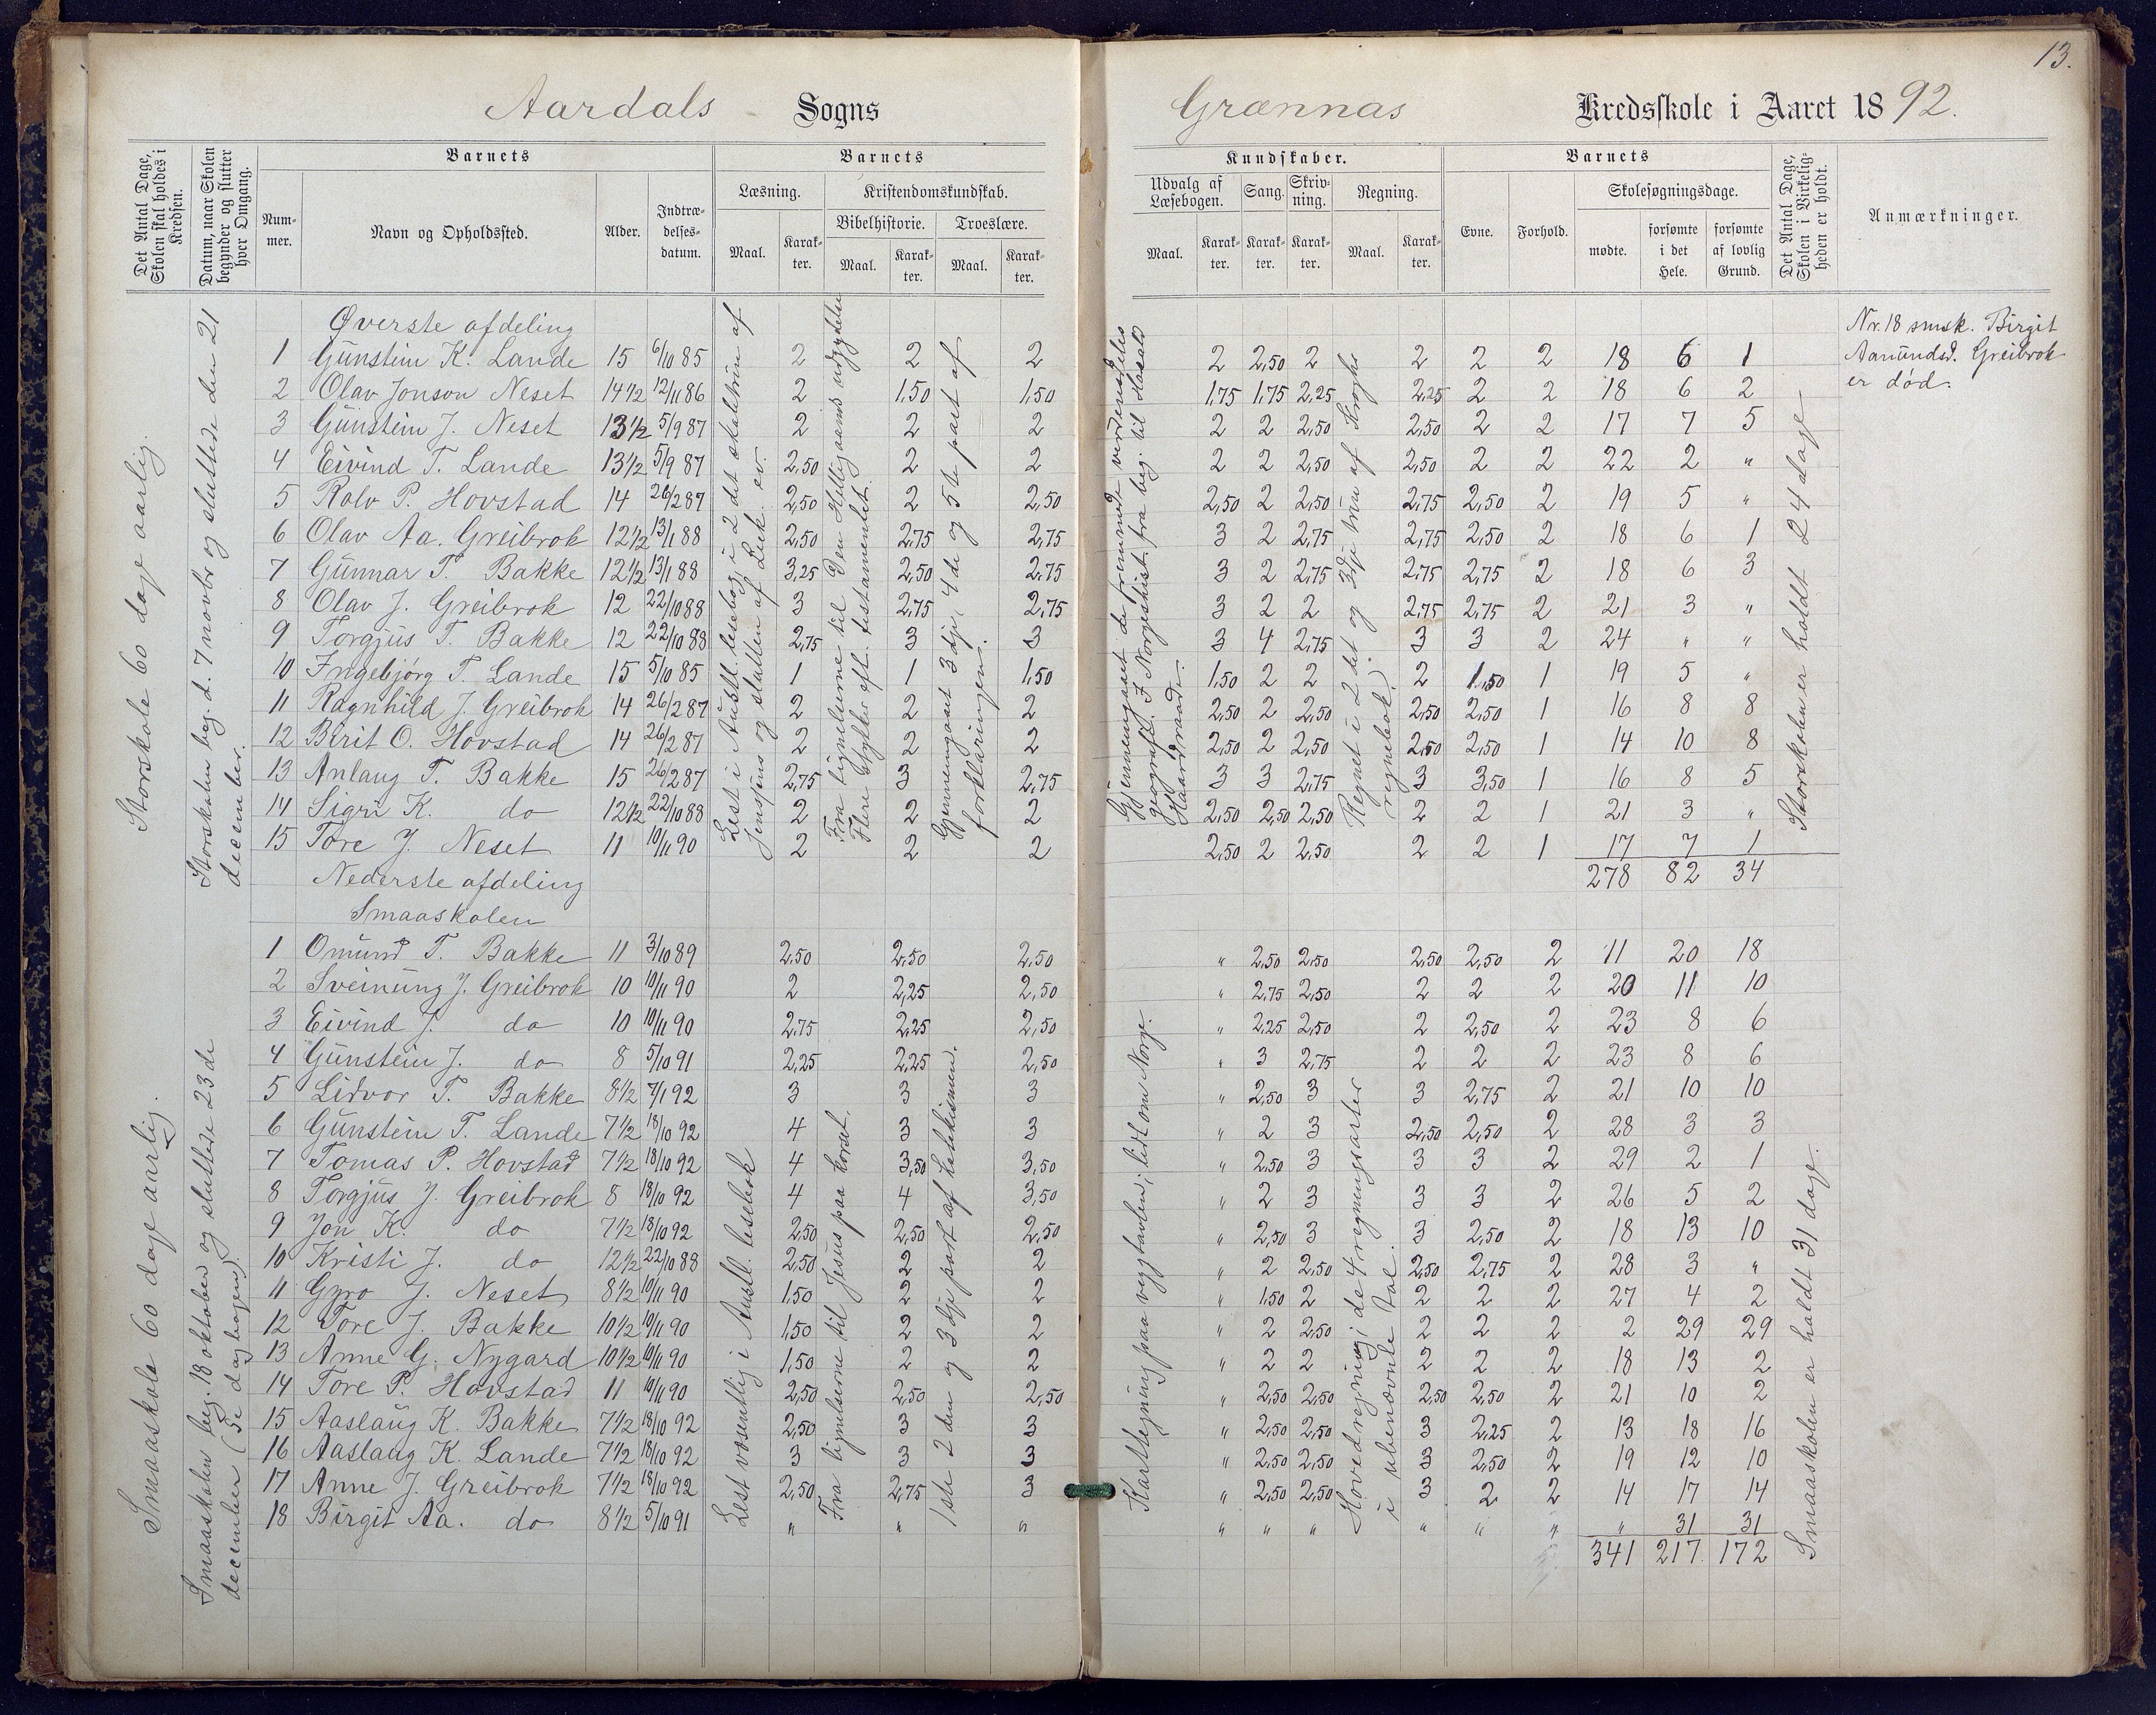 13.
Aardals Sogns
Grænnas Kredsskole i Aaret 1892.
Det Antal Dage, Skolen skal holdes i Kredsen.
Datum, naar Skolen begynder og slutter hver Omgang.
Barnets
Nummer.
Navn og Opholdssted.
Alder.
Indtrædelsesdatum.
Barnets
Læsning.
Maal.
Karakter.
Kristendomskundskab.
Bibelhistorie.
Maal.
Karakter.
Troeslære.
Maal.
Karakter.
Kundskaber.
Udvalg af Læsebogen.
Maal.
Karakter.
Sang.
Karakter.
Skrivning.
Karakter.
Regning.
Maal.
Karakter.
Barnets
Evne.
Forhold.
Skolesøgningsdage.
mødte.
forsømte i det Hele.
forsømte af lovlig Grund.
Det Antal Dage, Skolen i Virkeligheden er holdt.
Anmærkninger.
Storskole 60 dage aarlig.
Storskolen beg. d. 7 novbr og sluttede den 21 december.
Øverste afdeling
1 Gunstein K. Lande 15 6/10 85 2 2 2 2 2,50 2 2 2 2 18 6 1
2 Olav Jonson Neset 14 1/2 12/11 86 2 1,50 1,50 1,75 1,75 2,25 2,25 2 2 18 6 2
3 Gunstein J. Neset 13 1/2 5/9 87 2 2 2 2 2 2,50 2,50 2 2 17 7 5
4 Eivind T. Lande 13 1/2 5/9 87 2,50 2 2 2 2 2,50 2,50 2 2 22 2 "
5 Rolv P. Hovstad 14 26/2 87 2,50 2 2,50 2,50 2 2,50 2,75 2,50 2 19 5 "
6 Olav Aa. Greibrok 12 1/2 13/1 88 2,50 2,75 2,75 3 2 2,75 2,75 2,50 2 18 6 1
7 Gunnar T. Bakke 12 1/2 13/1 88 3,25 2,50 2,75 3 2 2,75 2,75 2,75 2 18 6 3
8 Olav J. Greibrok 12 22/10 88 3 2,75 2,75 3 2 2 2,75 2,75 2 21 3 "
9 Torgjus T. Bakke 12 22/10 88 2,75 3 3 3 4 2,75 3 3 2 24 " "
10 Ingebjørg T. Lande 15 5/10 85 1 1 1,50 1,50 2 2 2 1,50 1 19 5 "
11 Ragnhild J. Greibrok 14 26/2 87 2 2 2 2,50 2 2,50 2,50 2,50 1 16 8 8
12 Birit O. Hovstad 14 26/2 87 2 2 2 2,50 2 2,50 2,50 2,50 1 14 10 8
13 Anlaug T. Bakke 15 26/2 87 2,75 3 2,75 3 3 2,75 3 3,50 1 16 8 5
14 Sigri K. do 12 1/2 22/10 88 2 2 2 2,50 2,50 2,50 2 2 1 21 3 "
15 Tore J. Neset 11 10/11 90 2 2 2 2,50 2 2,50 2 2 1 17 7 1
278 82 34
Lest i Austl. lesebog i 2 det skoletrin af Jenssens og slutten af Luk. ev.
Fra lignelserne til Den Helligaand udgydelse
Flere stykker aft. testamentet.
Gjennemgaaet 3 dje, 4 de og 5 te part af forklaringen.
Gjennemgaaet de fremmede verdensdeles geografi. I Norgeshist. fra beg. til Harald Haardraade.
Regnet i 2 det og 3 dje trin af Kroghs regnebok.
Storskolen er holdt 24 dage
Nr. 18 smsk. Birgit Aamundsd. Greibrok er død.
Nederste afdeling
Smaaskolen
Smaaskole 60 dage aarlig.
Smaaskolen beg. 18 oktober og sluttede 23 de december (Se dagbogen).
1 Omund T. Bakke 11 3/10 89 2,50 2,50 2,50 " 2,50 2,50 2,50 2,50 2 11 20 18
2 Sveinung J. Greibrok 10 10/11 90 2 2,25 2,50 " 2,75 2,50 2 2 2 20 11 10
3 Eivind J. do 10 10/11 90 2,75 2,25 2,50 " 2,25 2,50 2 2,50 2 23 8 6
4 Gunstein J. do 8 5/10 91 2,25 2,25 2,50 " 3 2,75 2 2 2 23 8 6
5 Lidvor T. Bakke 8 1/2 7/1 92 3 3 3 " 2,50 3 3 2,75 2 21 10 10
6 Gunstein T. Lande 7 1/2 18/10 92 4 3 3 " 2 3 2,50 2,50 2 28 3 3
7 Tomas P. Hovstad 7 1/2 18/10 92 4 3,50 3,50 " 2,50 3 3 3 2 29 2 1
8 Torgjus J. Greibrok 8 18/10 92 4 4 3,50 " 2 3 3 3 2 26 5 2
9 Jon K. do 7 1/2 18/10 92 2,50 2,50 2,50 " 2,50 3 3 2,50 2 18 13 10
10 Kristi J. do 12 1/2 22/10 88 2,50 2 2 " 2 2,50 2,50 2,75 2 28 3 "
11 Gyro J. Neset 8 1/2 10/11 90 1,50 2 2 " 1,50 2 2 2 2 27 4 2
12 Tore J. Bakke 10 1/2 10/11 90 1,50 2 2 " 2 2,50 2 2 2 2 29 29
13 Anne G. Nygard 10 1/2 10/11 90 1,50 2 2 " 2 2 2 2 2 18 13 2
14 Tore P. Hovstad 11 10/11 90 2,50 2,50 2,50 " 2,50 2,50 2,50 2,50 2 21 10 2
15 Aaslaug K. Bakke 7 1/2 18/10 92 2,50 3 3 " 2,50 2,50 3 2,25 2 13 18 16
16 Aaslaug K. Lande 7 1/2 18/10 92 3 3 3 " 2,50 2,50 3 2,50 2 19 12 10
17 Anne J. Greibrok 7 1/2 18/10 92 2,50 2,75 3 " 2,50 2,50 3 2 2 14 17 14
18 Birgit Aa. do 8 1/2 5/10 91 " " " " " " " " " " 31 31
341 217 172
Lest væsentlig i Austl. lesebok
Fra lignelserne til Jesus paa korset.
1ste 2 den og 3 dje part af katekismen.
Karttegning paa vegtavlen; lidt om Norge.
Hovedregning i de 4 regningsarter i ubenævnte tal.
Smaaskolen er holdt 31 dage.